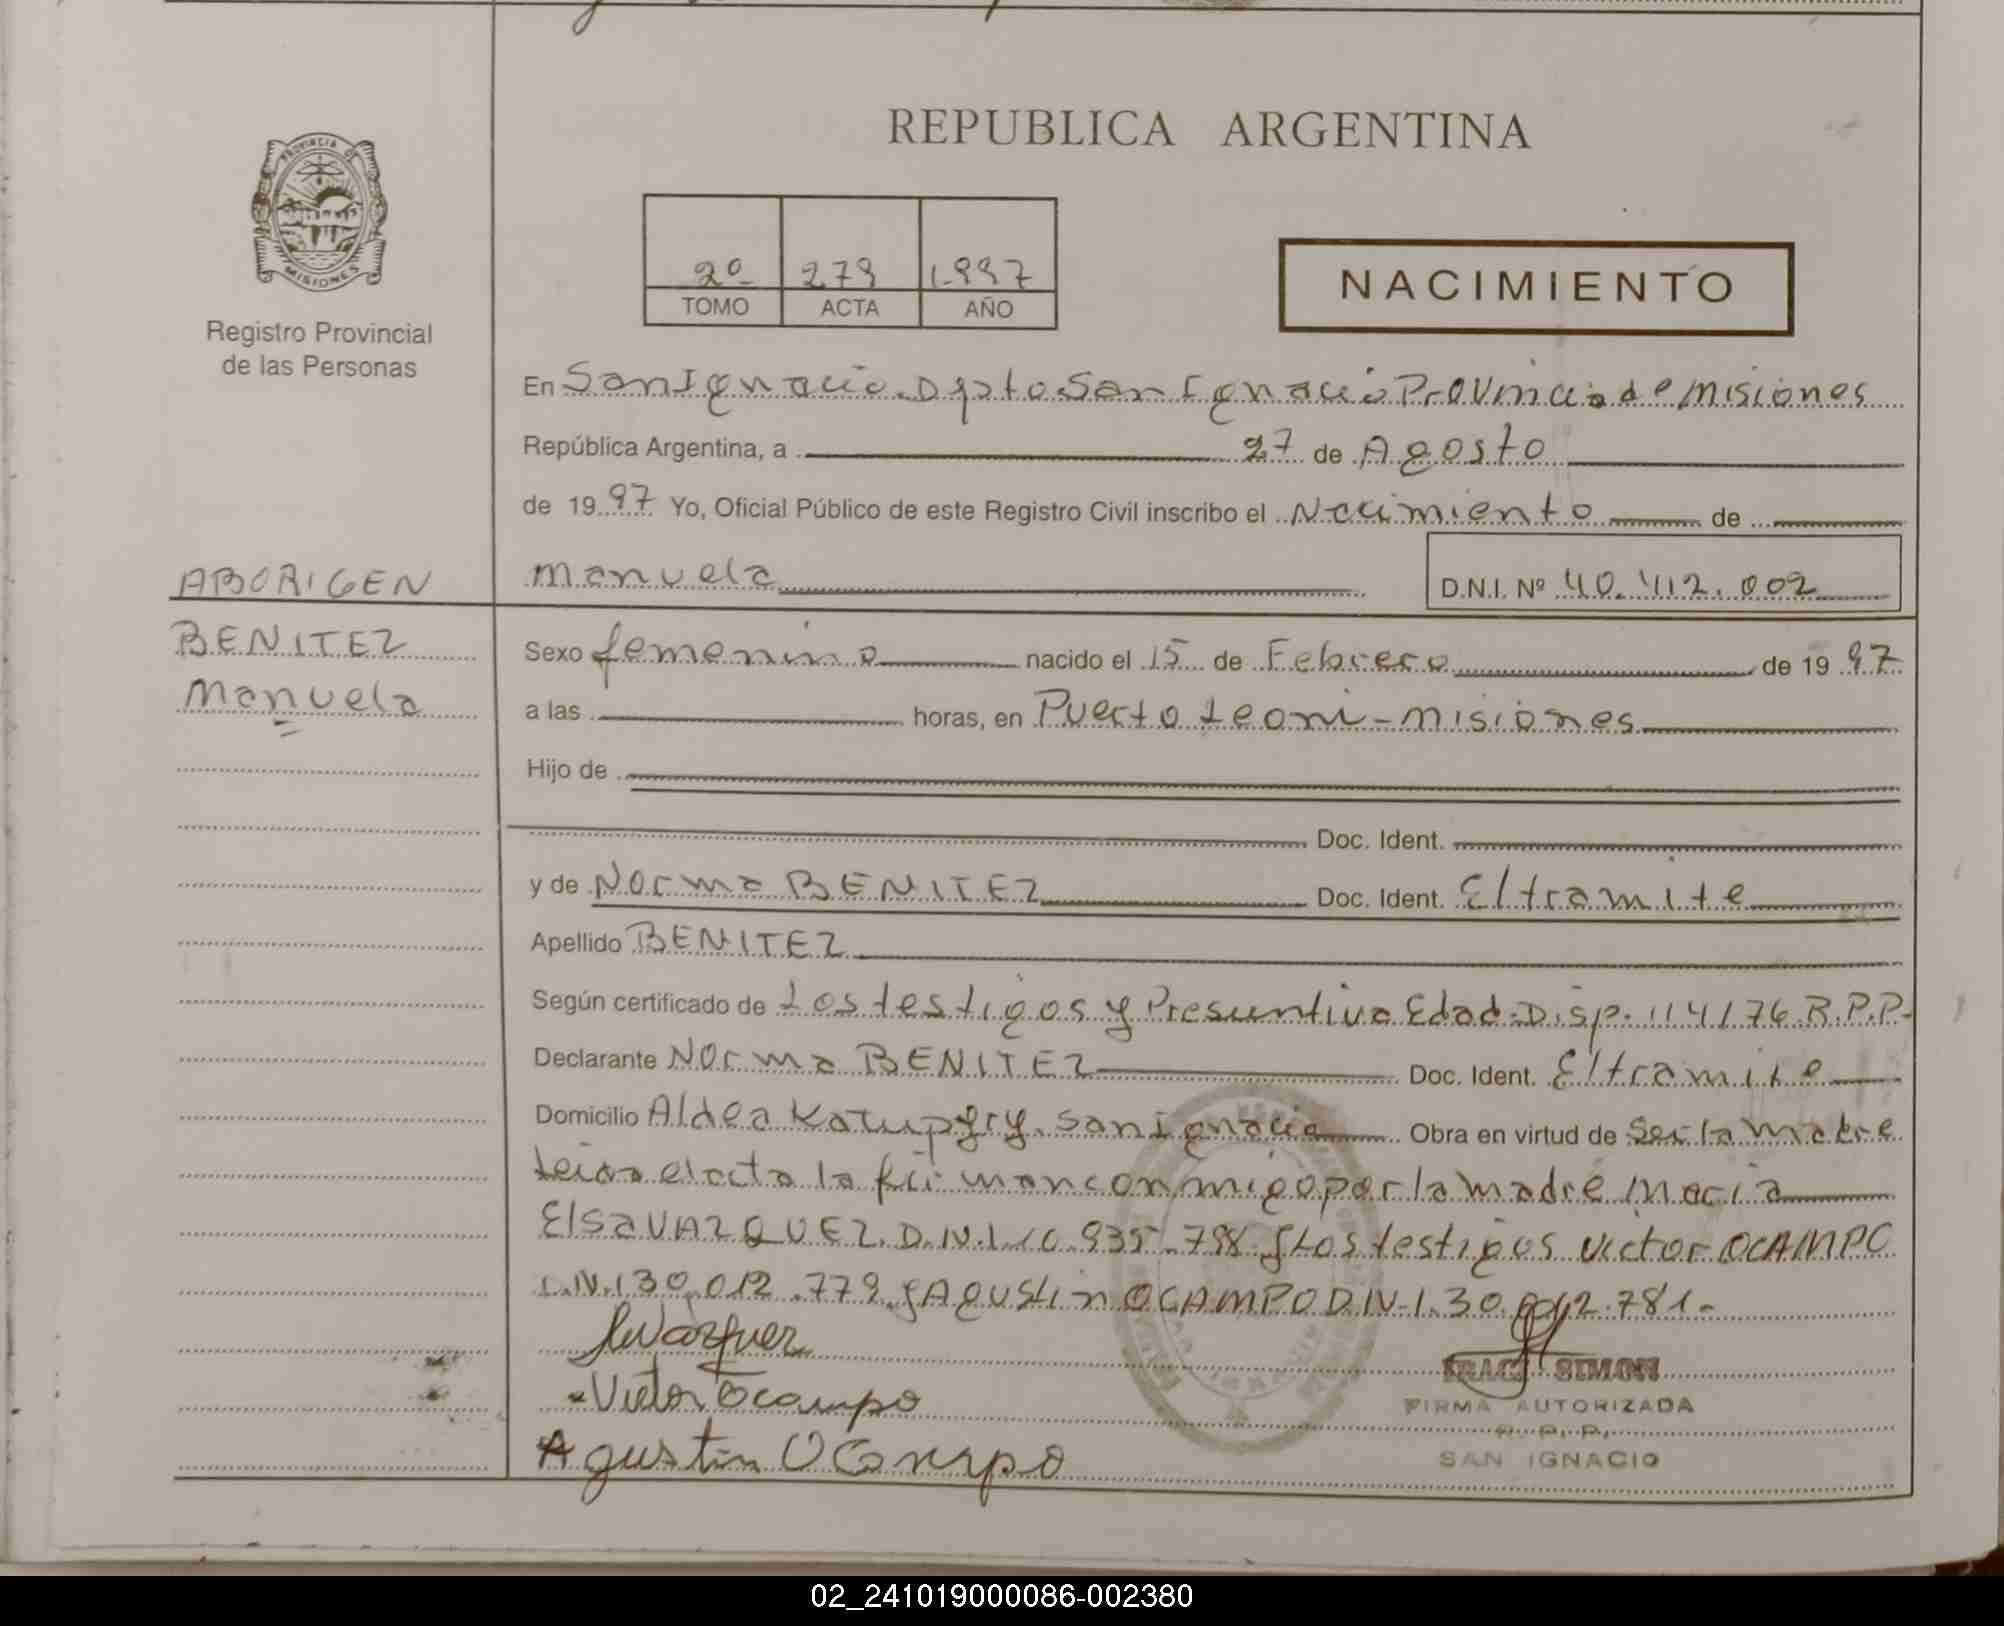 REPUBLICA ARGENTINA
PROVINCIA DE
MISIONES
Registro Provincial
de las Personas
2º 279 1.997
TOMO ACTA AÑO
NACIMIENTO
En San Ignacio. Dpto San Ignacio Provincia de Misiones
República Argentina, a 27 de Agosto
de 19 97 Yo, Oficial Público de este Registro Civil inscribo el Nacimiento de
ABORIGEN
Manuela D.N.I. Nº 40.412.002
BENITEZ
Manuela
Sexo femenino nacido el 15 de Febrero de 19 97
a las horas, en Puerto Leoni - Misiones
Hijo de
Doc. Ident.
y de Norma BENITEZ Doc. Ident. El tramite
Apellido BENITEZ
Según certificado de Los testigos y Presuntiva Edad. Disp. 114/76 R.P.P.
Declarante Norma BENITEZ Doc. Ident. El tramite
Domicilio Aldea Katupyry. San Ignacio Obra en virtud de Ser la madre
leida el acta la firman conmigo por la madre Maria
Elsa VAZQUEZ. D.N.I. y Los testigos Victor OCAMPO
D.N.I 30.012.779. y AGUSTIN OCAMPO D.N.I. 30.012.781.-
Vazquez
Victor Ocampo
Agustin Ocampo
SIMON
FIRMA AUTORIZADA
R. P. P.
SAN IGNACIO
02_241019000086-002380